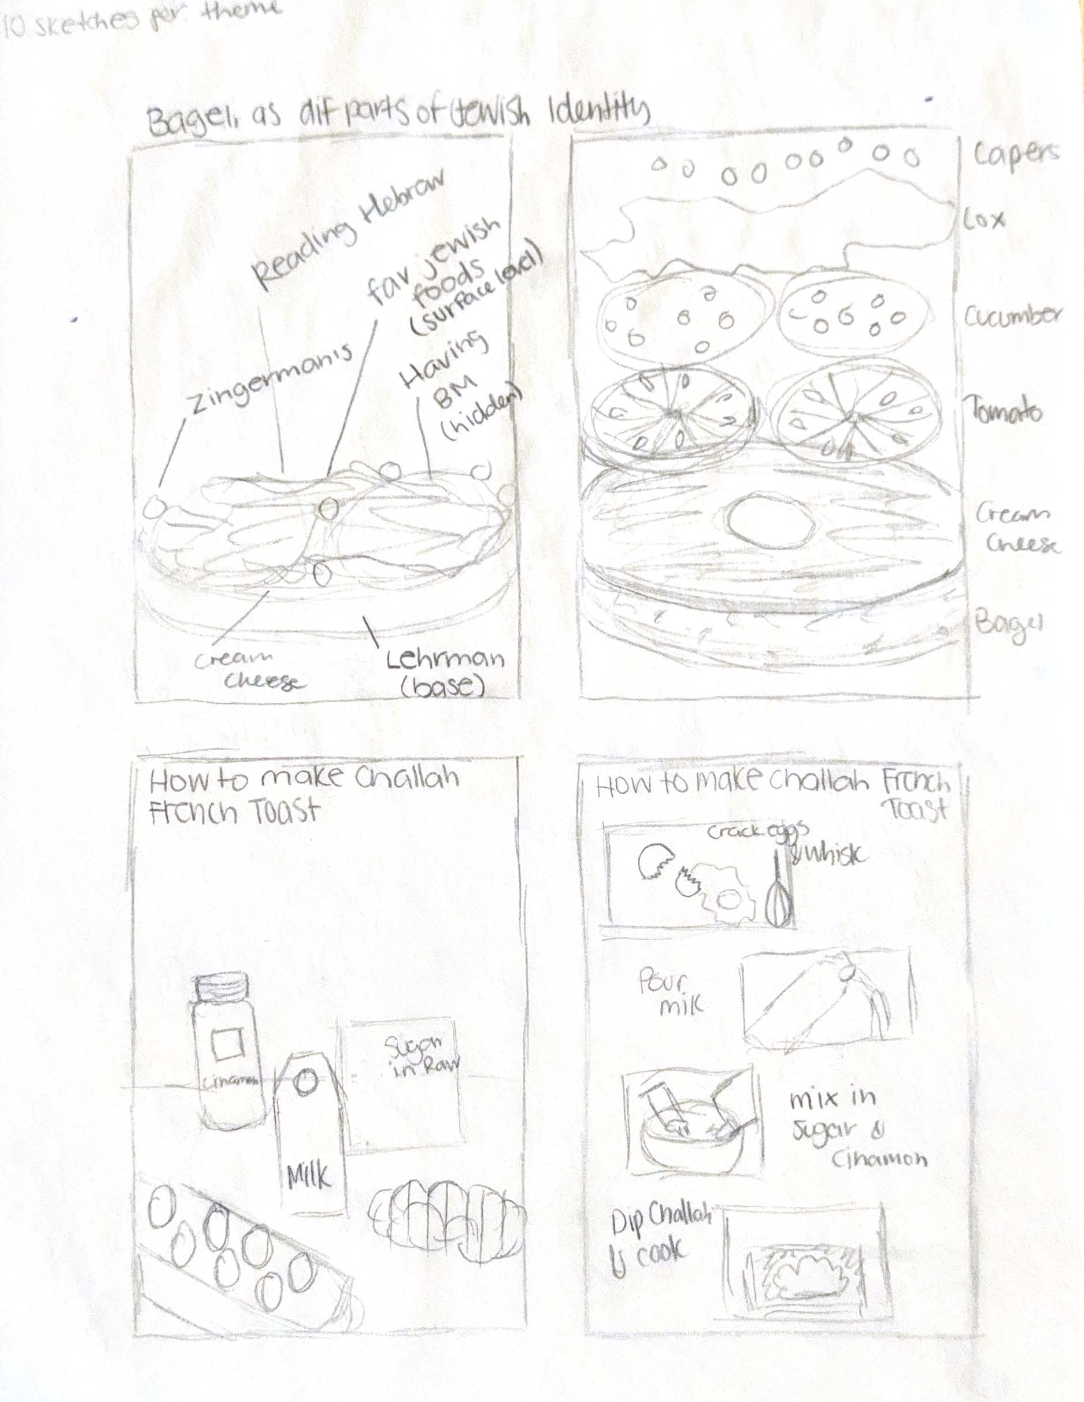 10 sketches per theme
Bagel, as dif parts of Jewish Identity
Reading Hebrew
fav jewish
foods
(surface level)
Zingerman's
Having
BM
(hidden)
cream
cheese
Lehrman
(base)
Capers
Lox
Cucumber
Tomato
Cream
Cheese
Bagel
How to make Challah
French Toast
Cinamon
Sugar
in Raw
Milk
How to make challah French
Toast
Crack eggs
& Whisk
Pour
milk
mix in
Sugar &
Cinamon
Dip Challah
& cook